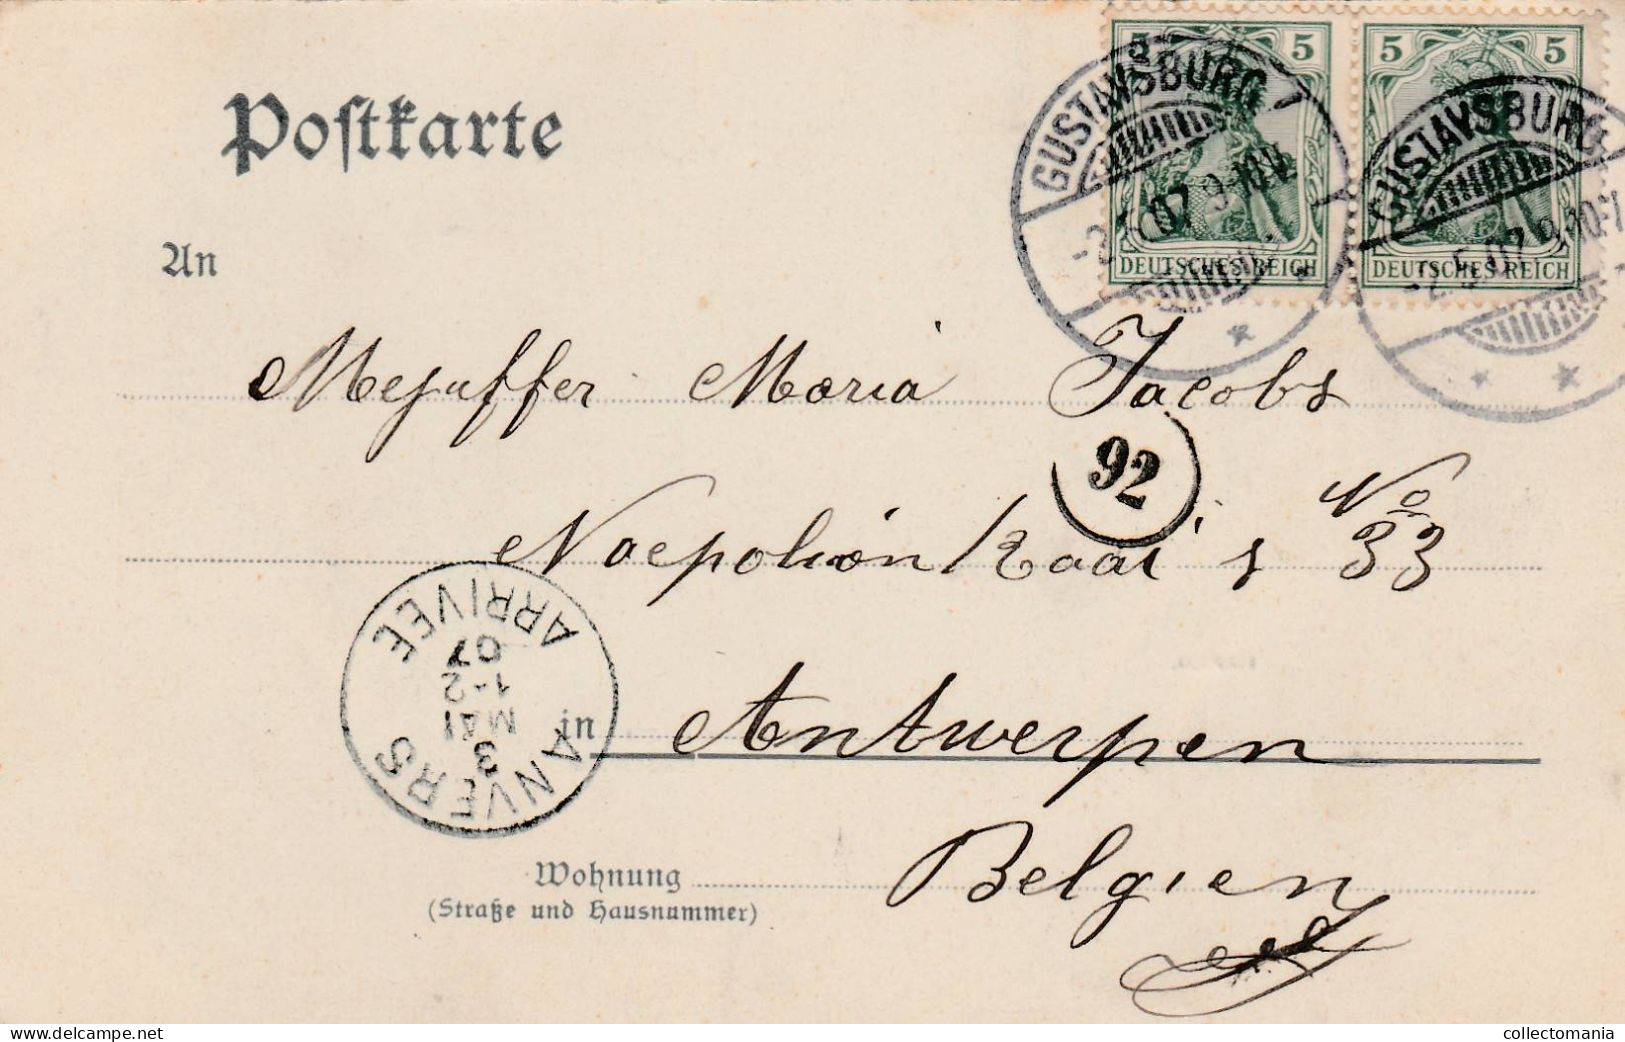 5 5 5 5
DEUTSCHES REICH DEUTSCHES REICH
GUSTAVSBURG
-2.5.07.9-10V.
*
GUSTAVSBURG
-2.5.07.9-10V
* *
Postkarte
An
Mejuffer Maria Jacobs
92
Naepoleon Kaai s No 33
ANVERS ARRIVÉE
3
MAI
1-2
07
in Antwerpen
Belgien
Wohnung
(Straße und Hausnummer)
collectomania